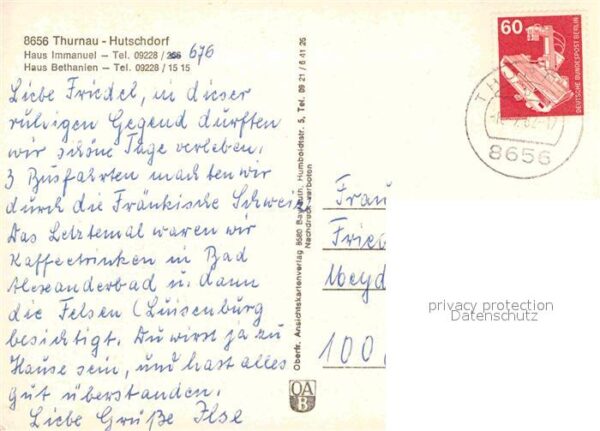 8656 Thurnau - Hutschdorf
Haus Immanuel – Tel. 09228 / 266 676
Haus Bethanien – Tel. 09228 / 15 15
Liebe Friedel, in dieser
ruhigen Gegend durften
wir schöne Tage verleben.
3 Busfahrten machten wir
durch die Fränkische Schweiz
Das Letztemal waren wir
Kaffeetrinken in Bad
Alexanderbad u. dann
die Felsen (Luisenburg
besichtigt. Du wirst ja zu
Hause sein, und hast alles
gut überstanden.
Liebe Grüße Ilse
Oberfr. Ansichtskartenverlag 8580 Bayreuth, Humboldtstr. 5, Tel. 09 21 / 6 41 26
Nachdruck verboten
OAB
60
DEUTSCHE BUNDESPOST BERLIN
8656
Frau
Fried
Meyd
100
privacy protection
Datenschutz